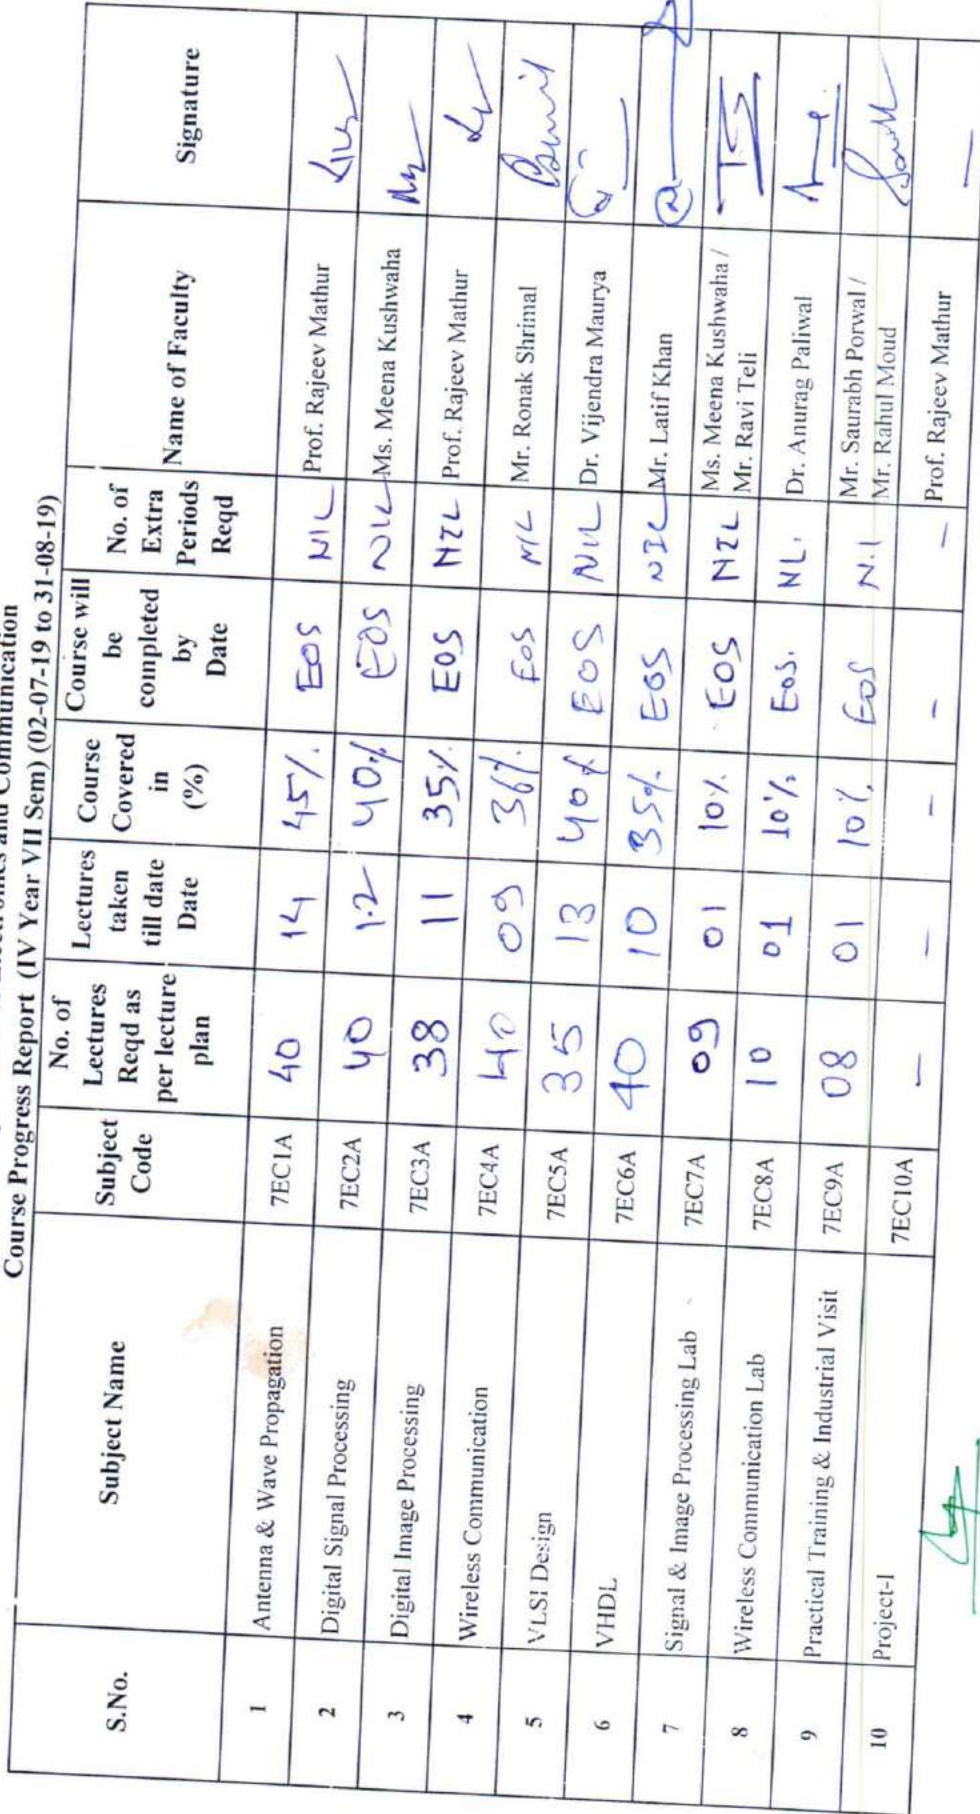 Electronics and Communication
Course Progress Report (IV Year VII Sem) (02-07-19 to 31-08-19)
S.No. Subject Name Subject Code No. of Lectures Reqd as per lecture plan Lectures taken till date Date Course Covered in (%) Course will be completed by Date No. of Extra Periods Reqd Name of Faculty Signature
1 Antenna & Wave Propagation 7EC1A 40 14 45% EOS NIL Prof. Rajeev Mathur
2 Digital Signal Processing 7EC2A 40 12 40% EOS NIL Ms. Meena Kushwaha
3 Digital Image Processing 7EC3A 38 11 35% EOS NIL Prof. Rajeev Mathur
4 Wireless Communication 7EC4A 40 09 36% EOS NIL Mr. Ronak Shrimal
5 VLSI Design 7EC5A 35 13 40% EOS NIL Dr. Vijendra Maurya
6 VHDL 7EC6A 40 10 35% EOS NIL Mr. Latif Khan
7 Signal & Image Processing Lab 7EC7A 09 01 10% EOS NIL Ms. Meena Kushwaha / Mr. Ravi Teli
8 Wireless Communication Lab 7EC8A 10 01 10% EOS. NL. Dr. Anurag Paliwal
9 Practical Training & Industrial Visit 7EC9A 08 01 10% EOS N.l Mr. Saurabh Porwal / Mr. Rahul Moud
10 Project-I 7EC10A - - - - - Prof. Rajeev Mathur -